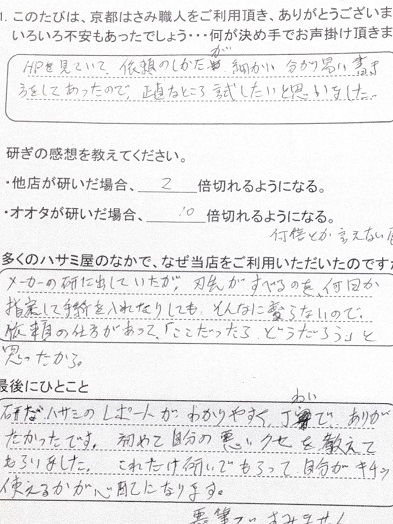 1. このたびは、京都はさみ職人をご利用頂き、ありがとうございま
いろいろ不安もあったでしょう・・・何が決め手でお声掛け頂きま
HPを見ていて、依頼のしかたが細かい 分かり易い書き
方をしてあったので、正直なところ 試したいと思いました。
研ぎの感想を教えてください。
・他店が研いだ場合、 2 倍切れるようになる。
・オオタが研いだ場合、 10 倍切れるようになる。
何倍とか 言えない
多くのハサミ屋のなかで、なぜ当店をご利用いただいたのですか
メーカーの研に出していたが、刃先がすべるのを、何回か
指定して手持を入れなりしても、そんなに変らないので、
依頼の仕方があって、「ここだったら、どうだろう」と
思ったから。
最後にひとこと
研ぎハサミのレポートが わかりやすく、丁寧で、ありが
たかったです。 初めて自分の悪いクセを教えて
もらいました。 これだけ研いでもらって 自分がキチッ
使えるかが心配になります。
悪筆ですみません